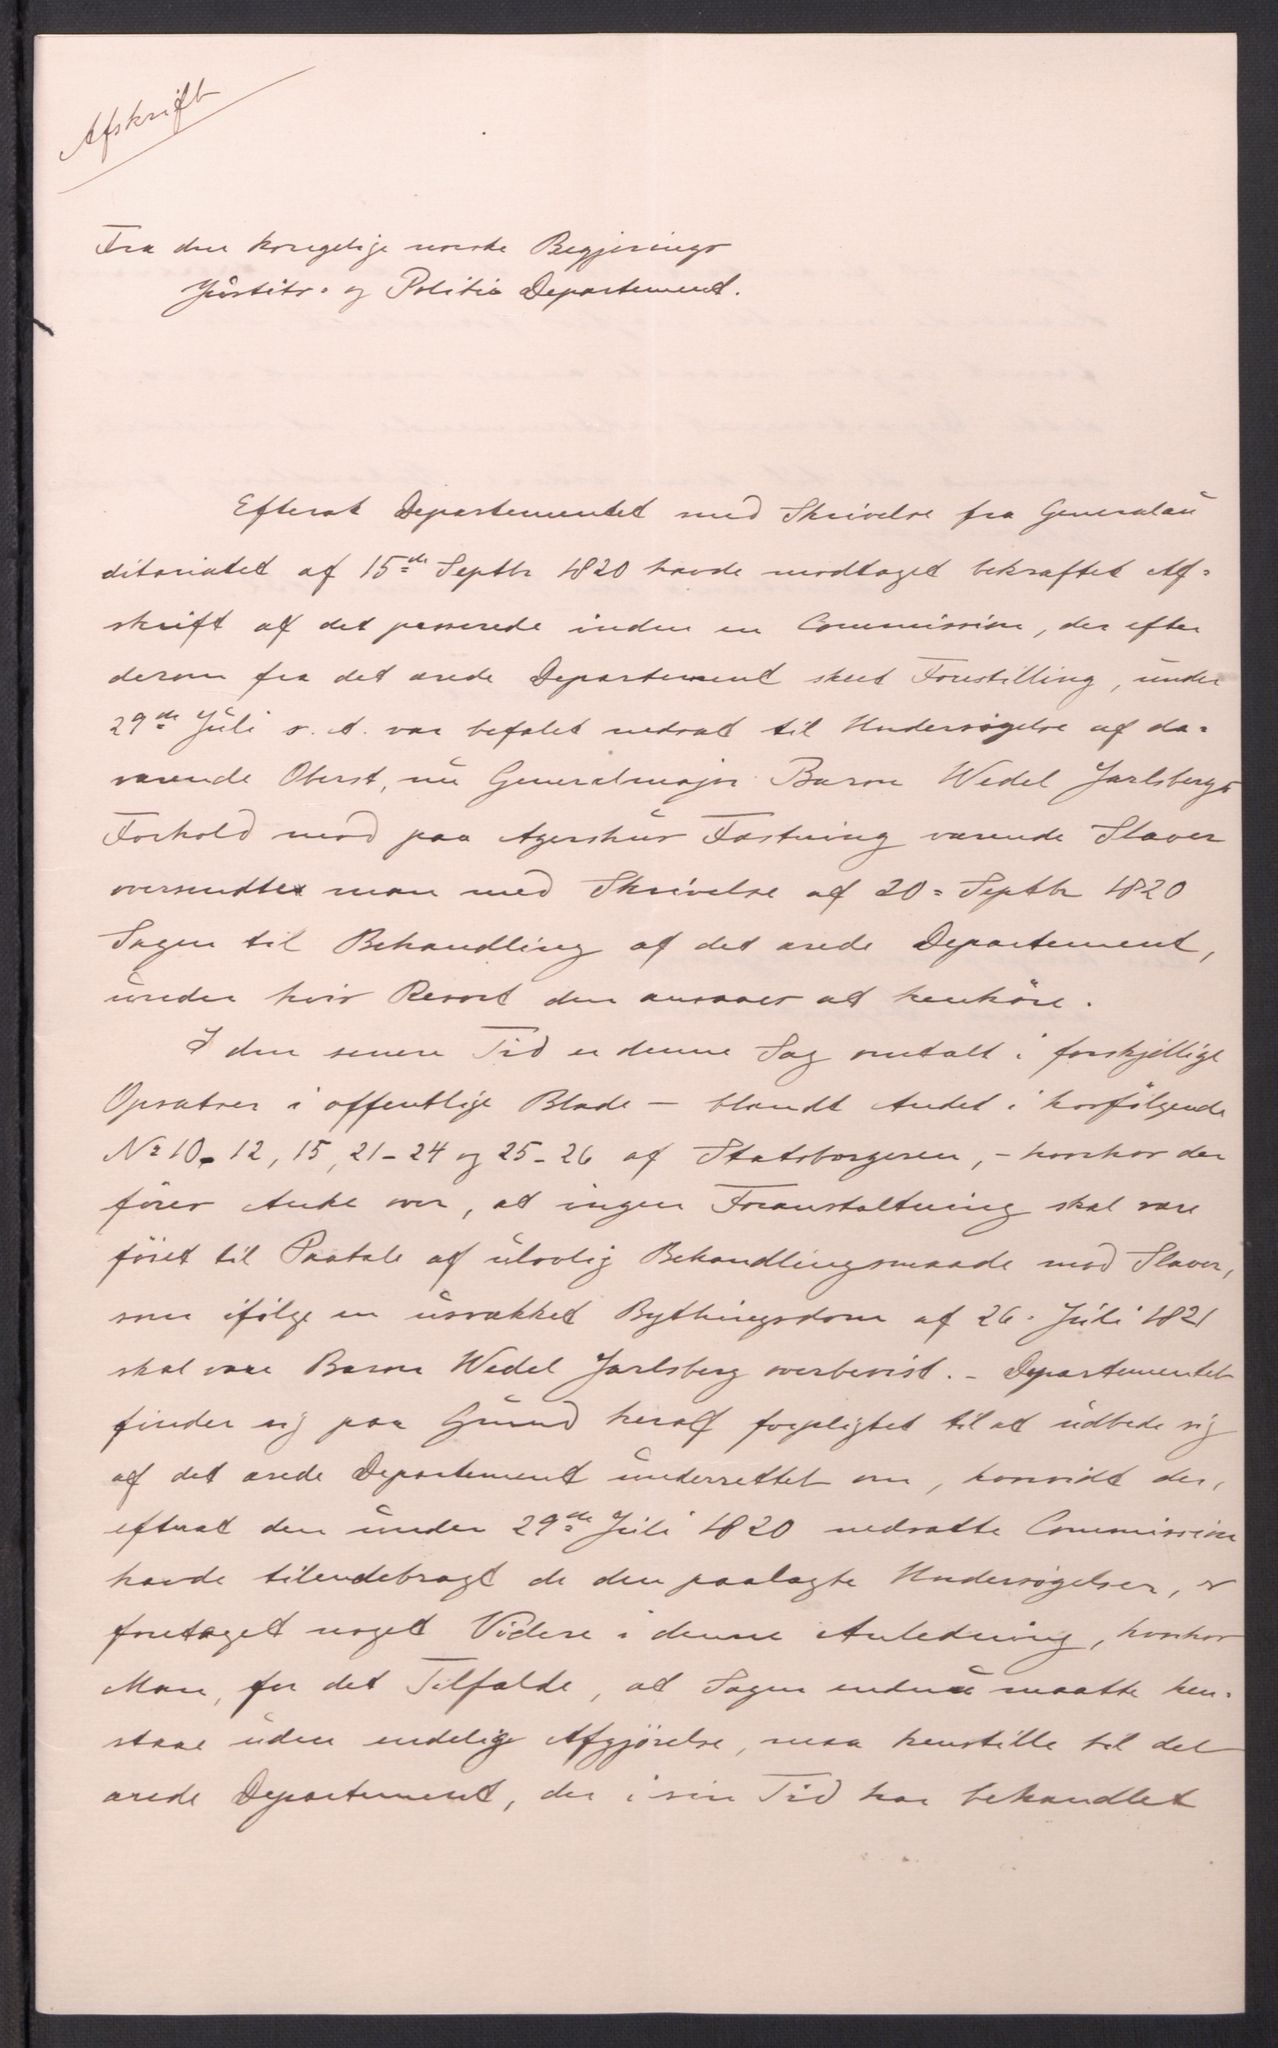 Afskrift
Fra den kongelige norske Regjerings
Justits- og Politie Departement.
Efterat Departementet med Skrivelse fra Generalau
ditoriatet af 15=de Septbr 1820 havde modtaget bekræftet Af=
skrift af det passerede inden en Commission, der efter
derom fra det ærede Departement skeet Forestilling, under
29=de Juli s. A. var befalet nedsat til Undersøgelse af da=
værende Oberst, nu Generalmajor Baron Wedel Jarlsbergs
Forhold mod paa Agershus Fæstning værende Slaver
oversendte man med Skrivelse af 20= Septbr 1820
Sagen til Behandling af det ærede Departement,
under hvis Resort den ansaaes at henhöre.
I den senere Tid er denne Sag omtalt i forskjellige
Opsatser i offentlige Blade — blandt Andet i hosfölgende
No 10, 12, 15, 21-24 og 25-26 af Statsborgeren, - hvorhos der
föres Anke over, at ingen Foranstaltning skal være
föiet til Paatale af ulovlig Behandlingsmaade mod Slaver,
som ifölge en usvækket Bythingsdom af 26. Juli 1821
skal være Baron Wedel Jarlsberg overbevist. - Departementet
finder sig paa Grund heraf forpligtet til at udbede sig
af det ærede Departement underrettet om, hvorvidt der,
efterat den under 29=de Juli 1820 nedsatte Commission
havde tilendebragt de den paalagte Undersøgelser, er
foretaget noget Videre i denne Anledning, hvorhos
Man, for det Tilfælde, at Sagen endnu maatte hen=
staae uden endelig Afgjörelse, maa henstille til det
ærede Departement, der i sin Tid har behandlet